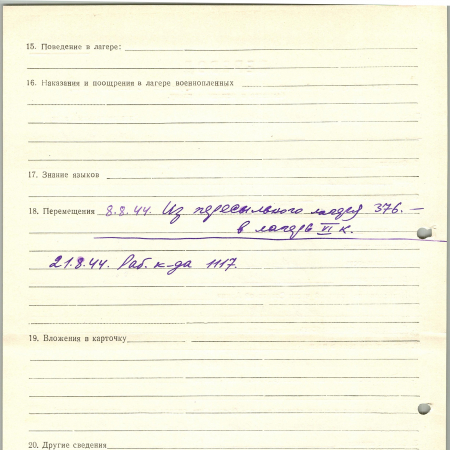 15. Поведение в лагере:
16. Наказания и поощрения в лагере военнопленных
17. Знание языков
18. Перемещения 8.8.44. Из пересыльного лагеря 376. –
в лагерь VI К.
21.8.44. Раб. к-да 1117.
19. Вложения в карточку
20. Другие сведения